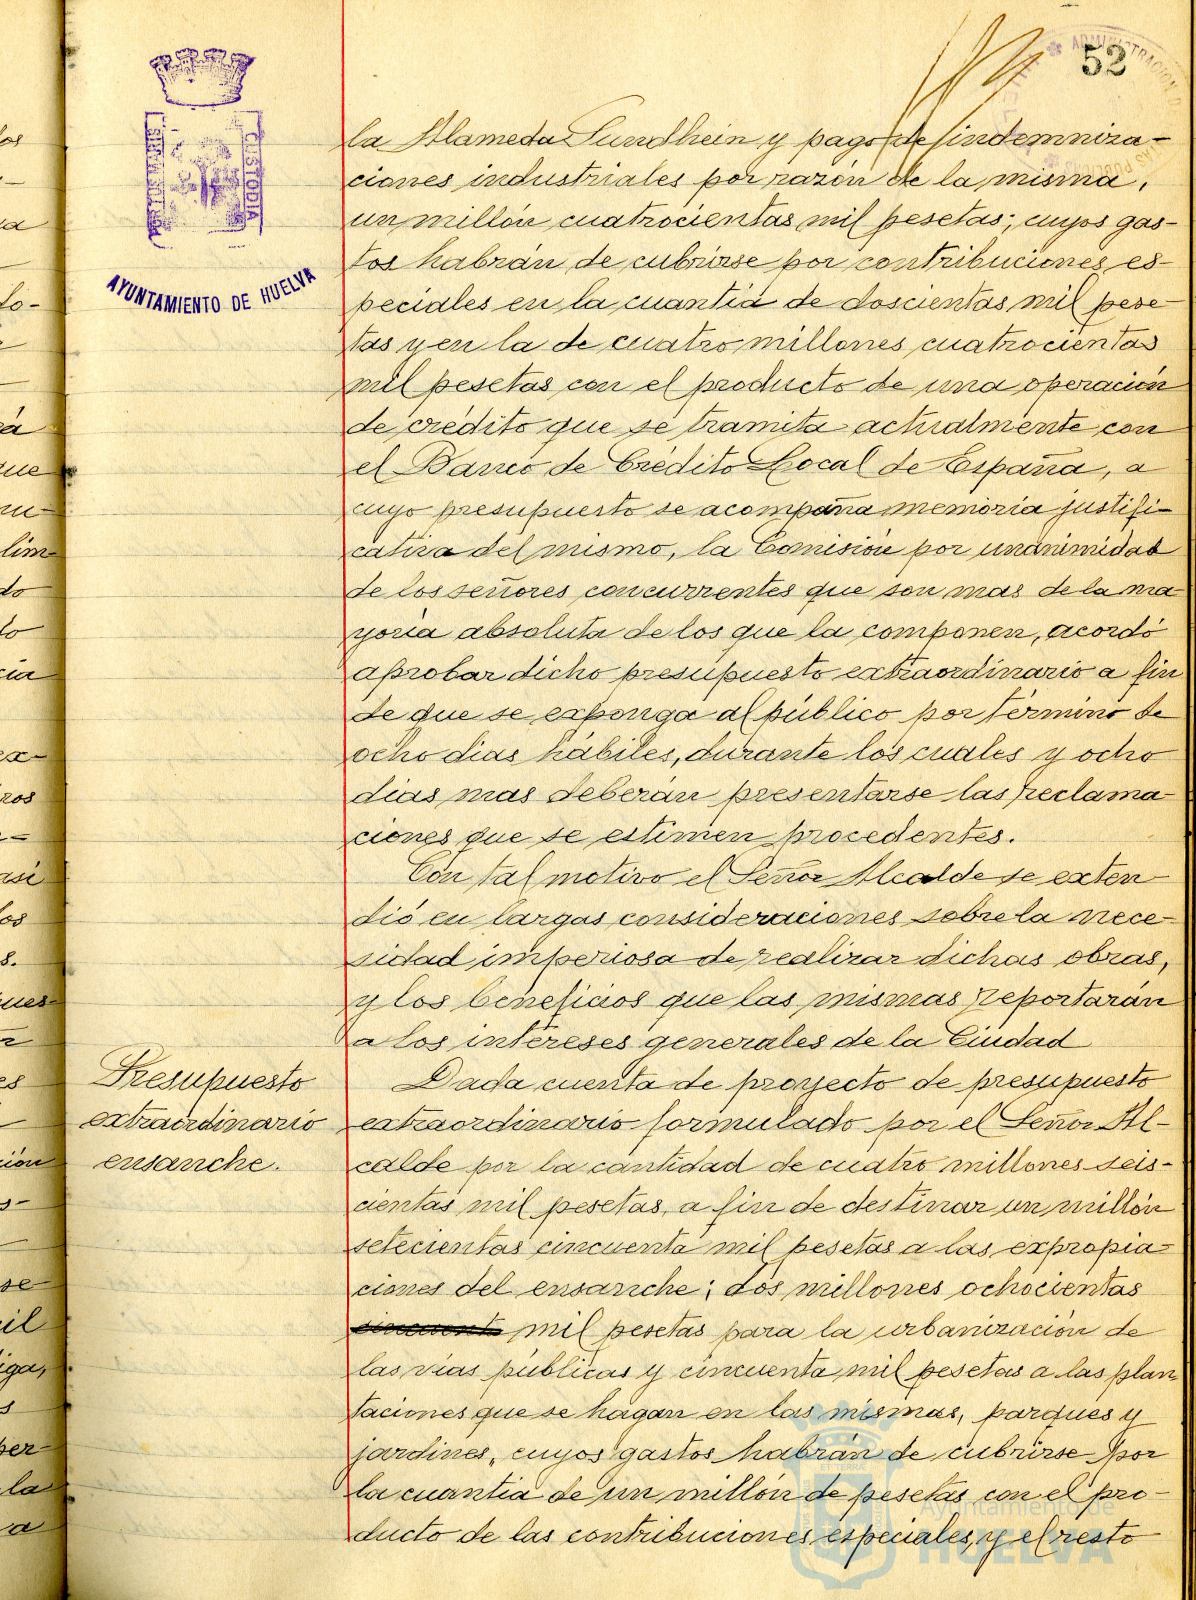 52
AYUNTAMIENTO DE HUELVA
CUSTODIA
la Alameda Sundhein y pago de indemniza-
ciones industriales por razón de la misma,
un millón cuatrocientas mil pesetas; cuyos gas-
tos habrán de cubrirse por contribuciones es-
peciales en la cuantía de doscientas mil pese-
tas y en la de cuatro millones cuatrocientas
mil pesetas con el producto de una operación
de crédito que se tramita actualmente con
el Banco de Crédito Local de España, a
cuyo presupuesto se acompaña memoria justifi-
cativa del mismo, la Comisión por unanimidad
de los señores concurrentes que son mas de la ma
yoría absoluta de los que la componen, acordó
aprobar dicho presupuesto extraordinario a fin
de que se exponga al público por término de
ocho dias hábiles, durante los cuales y ocho
dias mas deberán presentarse las reclama
ciones que se estimen procedentes.
Con tal motivo el Señor Alcalde se exten-
dió en largas consideraciones sobre la nece-
sidad imperiosa de realizar dichas obras,
y los beneficios que las mismas reportarán
a los intereses generales de la Ciudad
Presupuesto
extraordinario
ensanche.
Dada cuenta de proyecto de presupuesto
extraordinario formulado por el Señor Al-
calde por la cantidad de cuatro millones seis-
cientas mil pesetas, a fin de destinar un millón
setecientas cincuenta mil pesetas a las expropia-
ciones del ensanche; dos millones ochocientas
cincuenta mil pesetas para la urbanización de
las vías públicas y cincuenta mil pesetas a las plan
taciones que se hagan en las mismas, parques y
jardines, cuyos gastos habrán de cubrirse por
la cuantía de un millón de pesetas con el pro-
ducto de las contribuciones especiales, y el resto
Ayuntamiento de
HUELVA